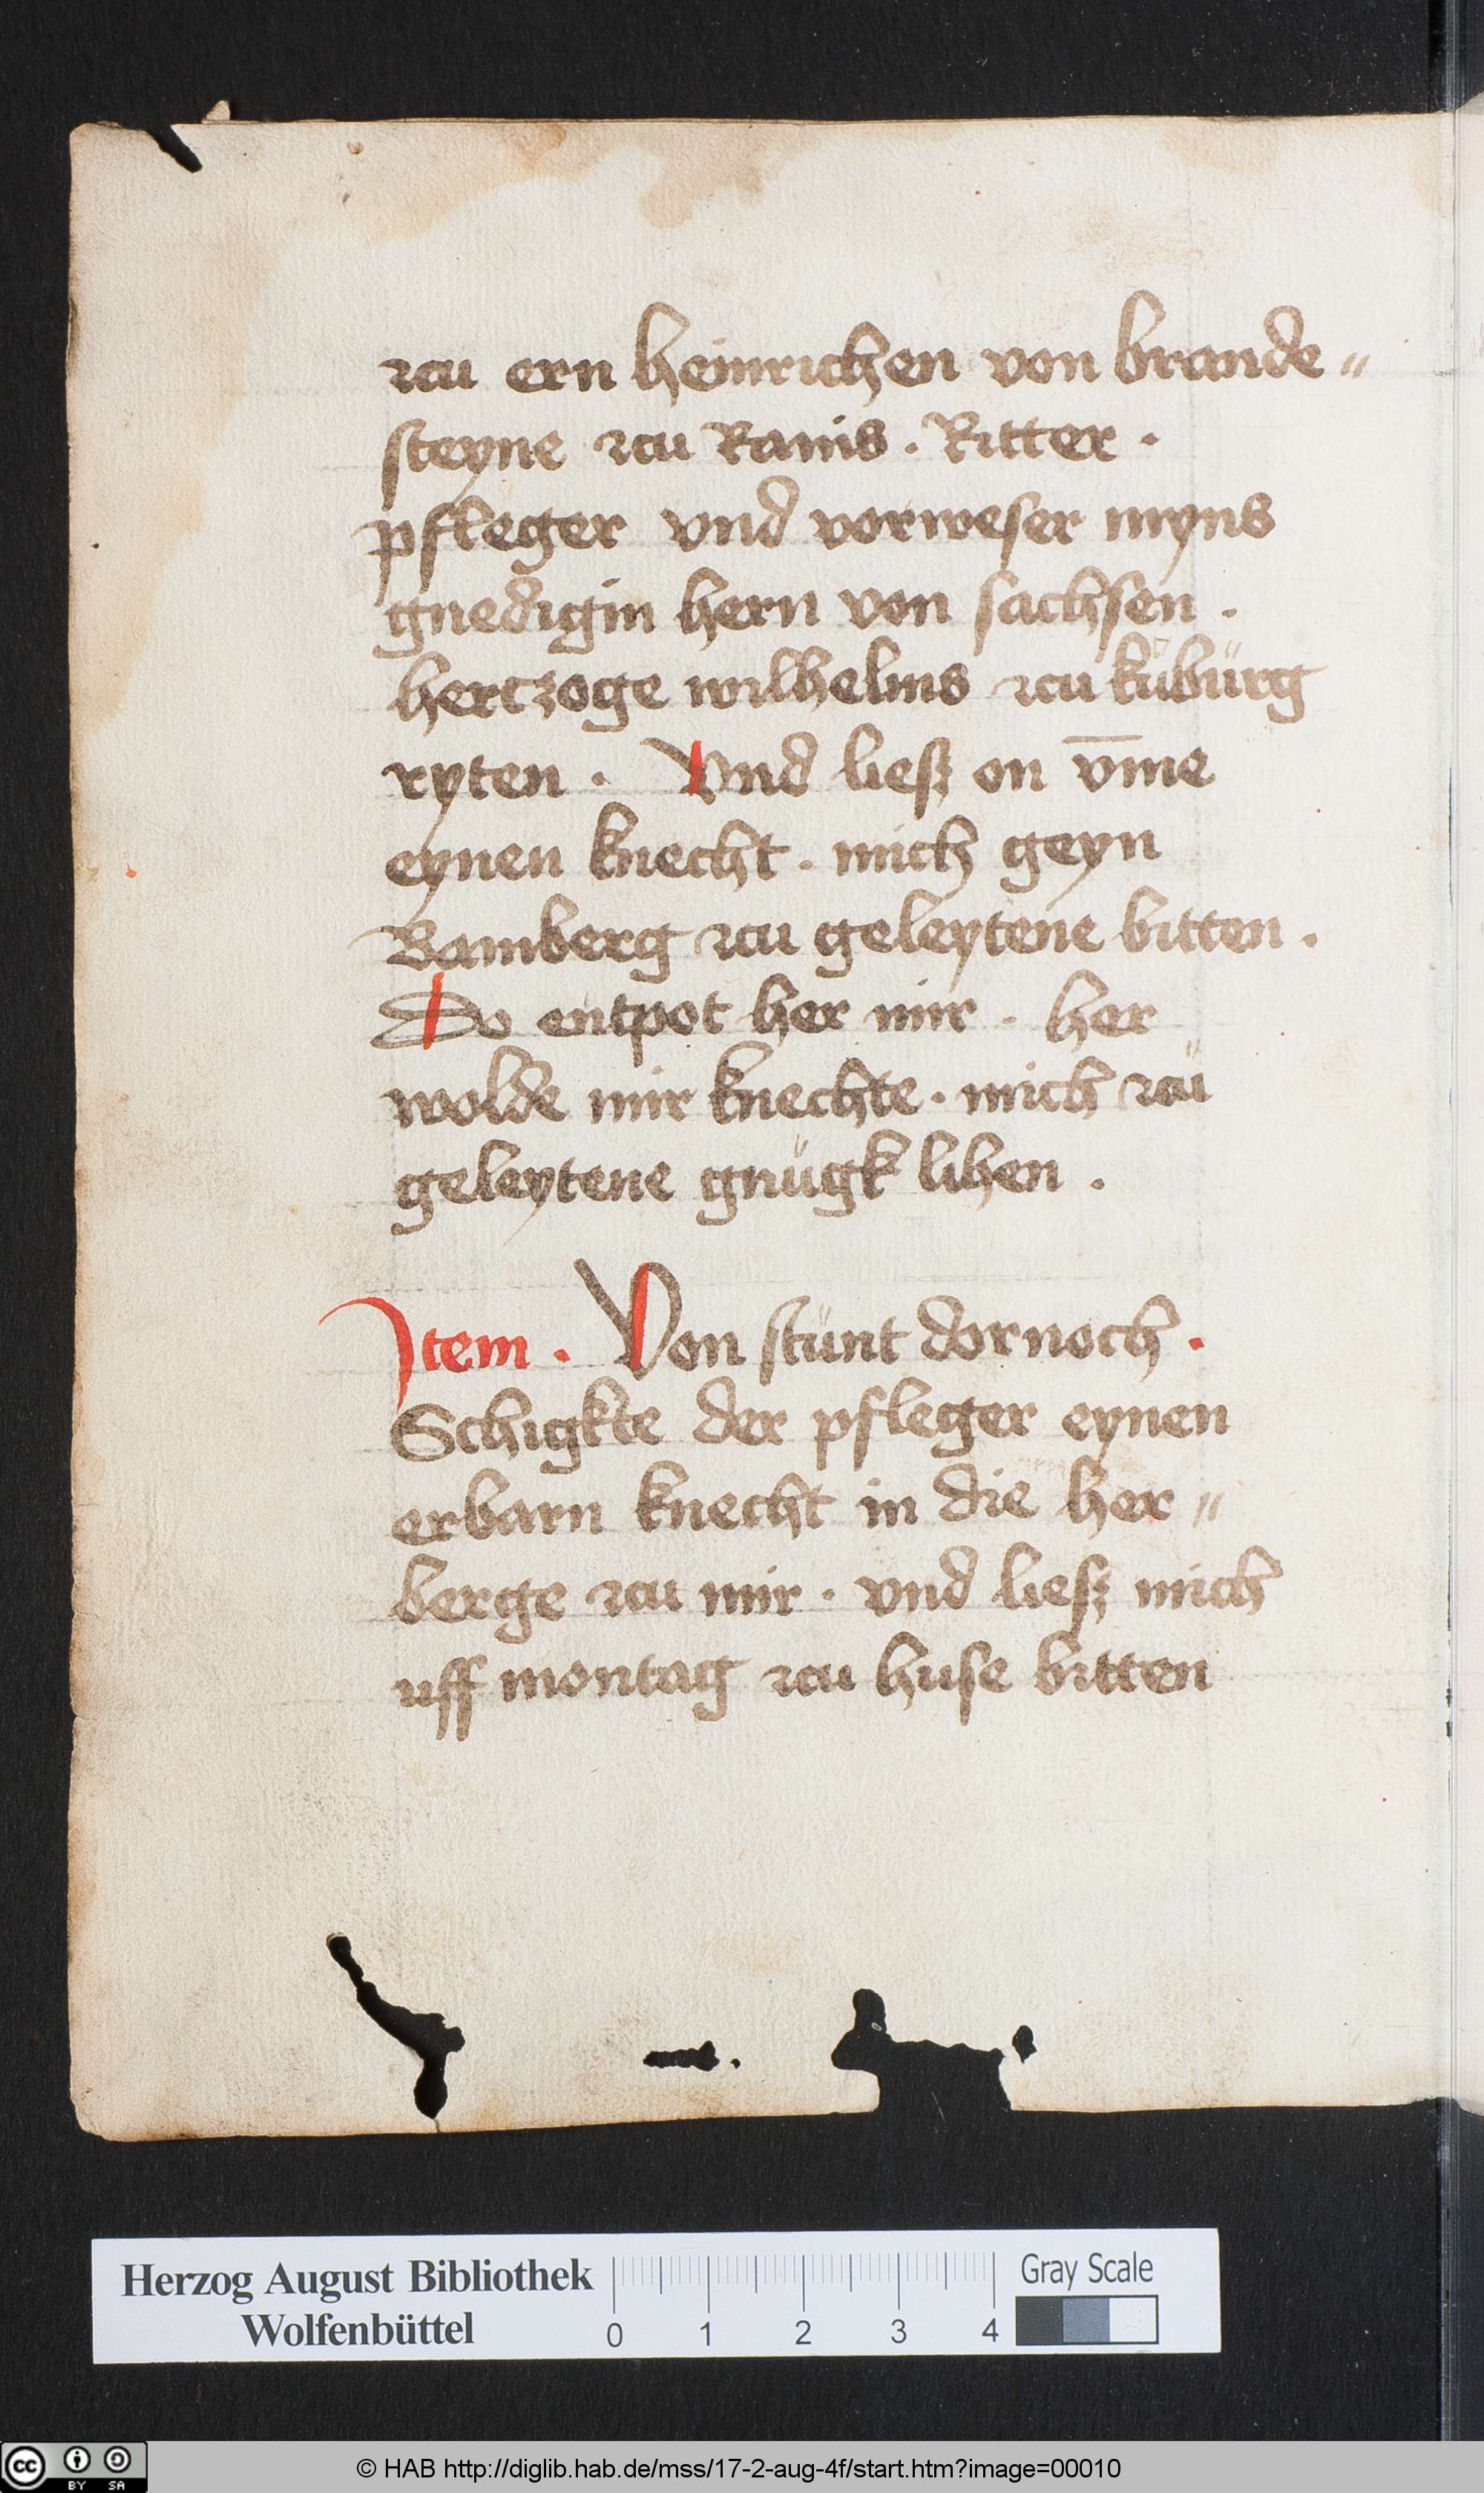 zcu ern heinrichen von brande„
steyne zcu Ranis . Ritter .
pfleger vnd vorweser myns
gnedigin hern von sachsen .
hertzoge wilhelms zcu kübürg
ryten . Vnd liesz on vm̄e
eynen knecht . mich geyn
Bamberg zcu geleytene bitten .
Do entpot her mir . her
wolde mir knechte . mich zcü
geleytene gnügk lihen .
Item . Von stünt dornoch .
Schigkte der pfleger eynen
erbarn knecht in die her„
berge zcu mir . vnd liesz mich
uff montag zcu huse bitten
Herzog August Bibliothek
Wolfenbüttel
0 1 2 3 4
Gray Scale
cc BY SA
© HAB http://diglib.hab.de/mss/17-2-aug-4f/start.htm?image=00010